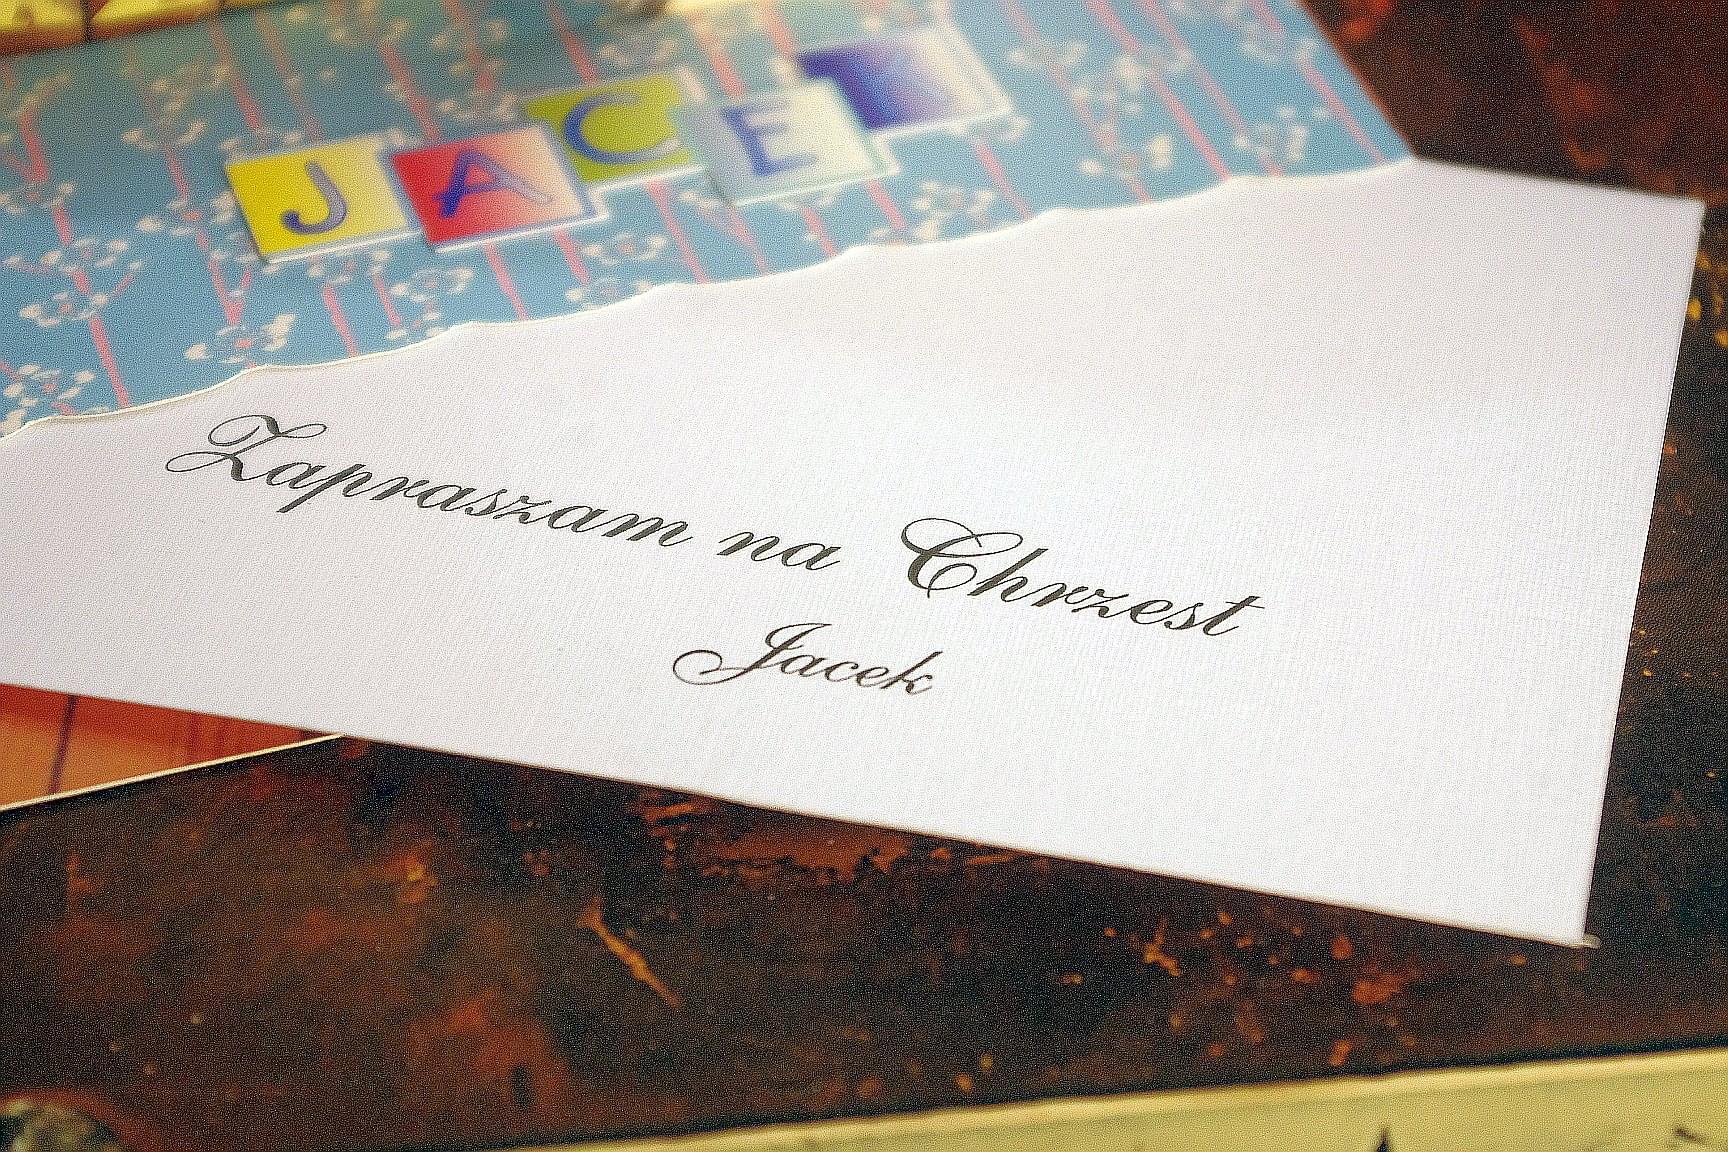 JACE
Zapraszam na Chrzest
Jacek